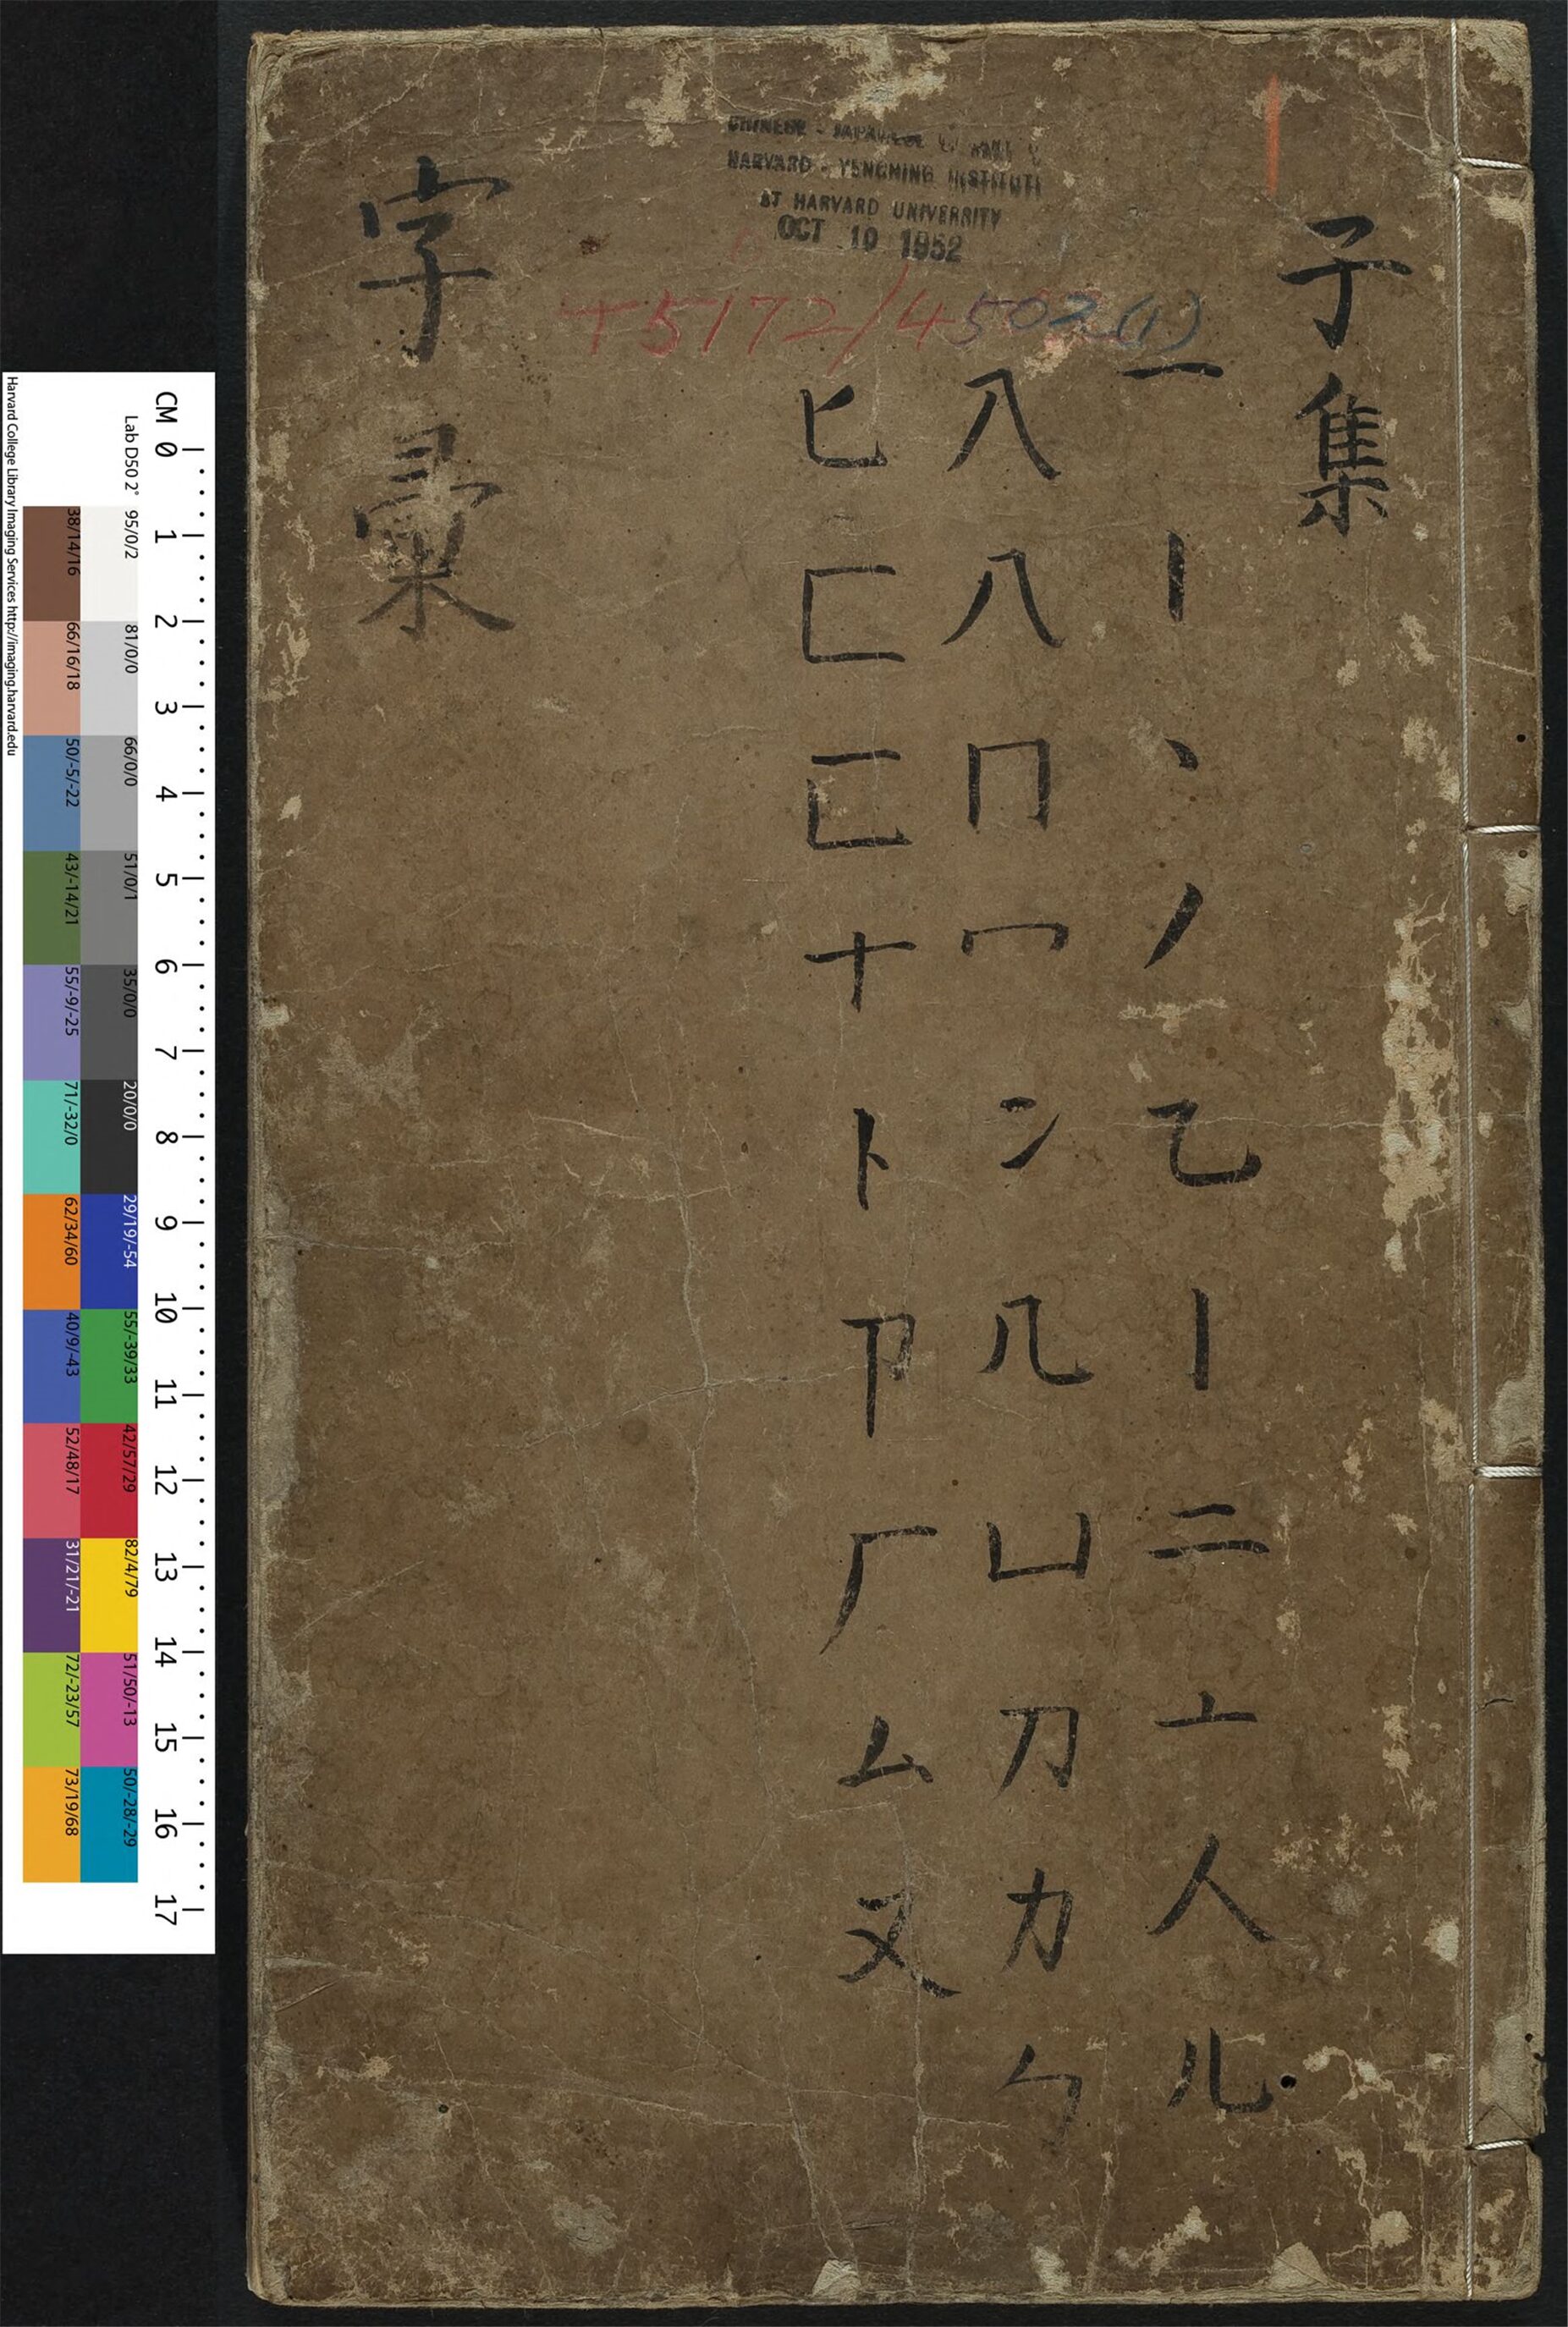 子集
一丨丶丿乙亅二亠人儿
入八冂冖冫几凵刀力勹
匕匚匸十卜卩厂厶又
字彙
HARVARD - YENCHING INSTITUTE
AT HARVARD UNIVERSITY
OCT 10 1952
T5172/4502(1)
CM 0 1 2 3 4 5 6 7 8 9 10 11 12 13 14 15 16 17
Lab D50 2° 95/0/2 81/0/0 66/0/0 51/0/1 35/0/0 20/0/0 29/19/-54 55/-39/33 42/57/29 82/4/79 51/50/-13 50/-28/-29
38/14/16 66/16/18 50/-5/-22 43/-14/21 55/-9/-25 71/-32/0 62/34/60 40/9/-43 52/48/17 31/21/-21 72/-23/57 73/19/68
Harvard College Library Imaging Services http://imaging.harvard.edu